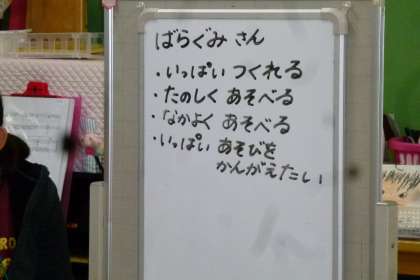 ばらぐみ さん
・いっぱい つくれる
・たのしく あそべる
・なかよく あそべる
・いっぱい あそびを
かんがえたい